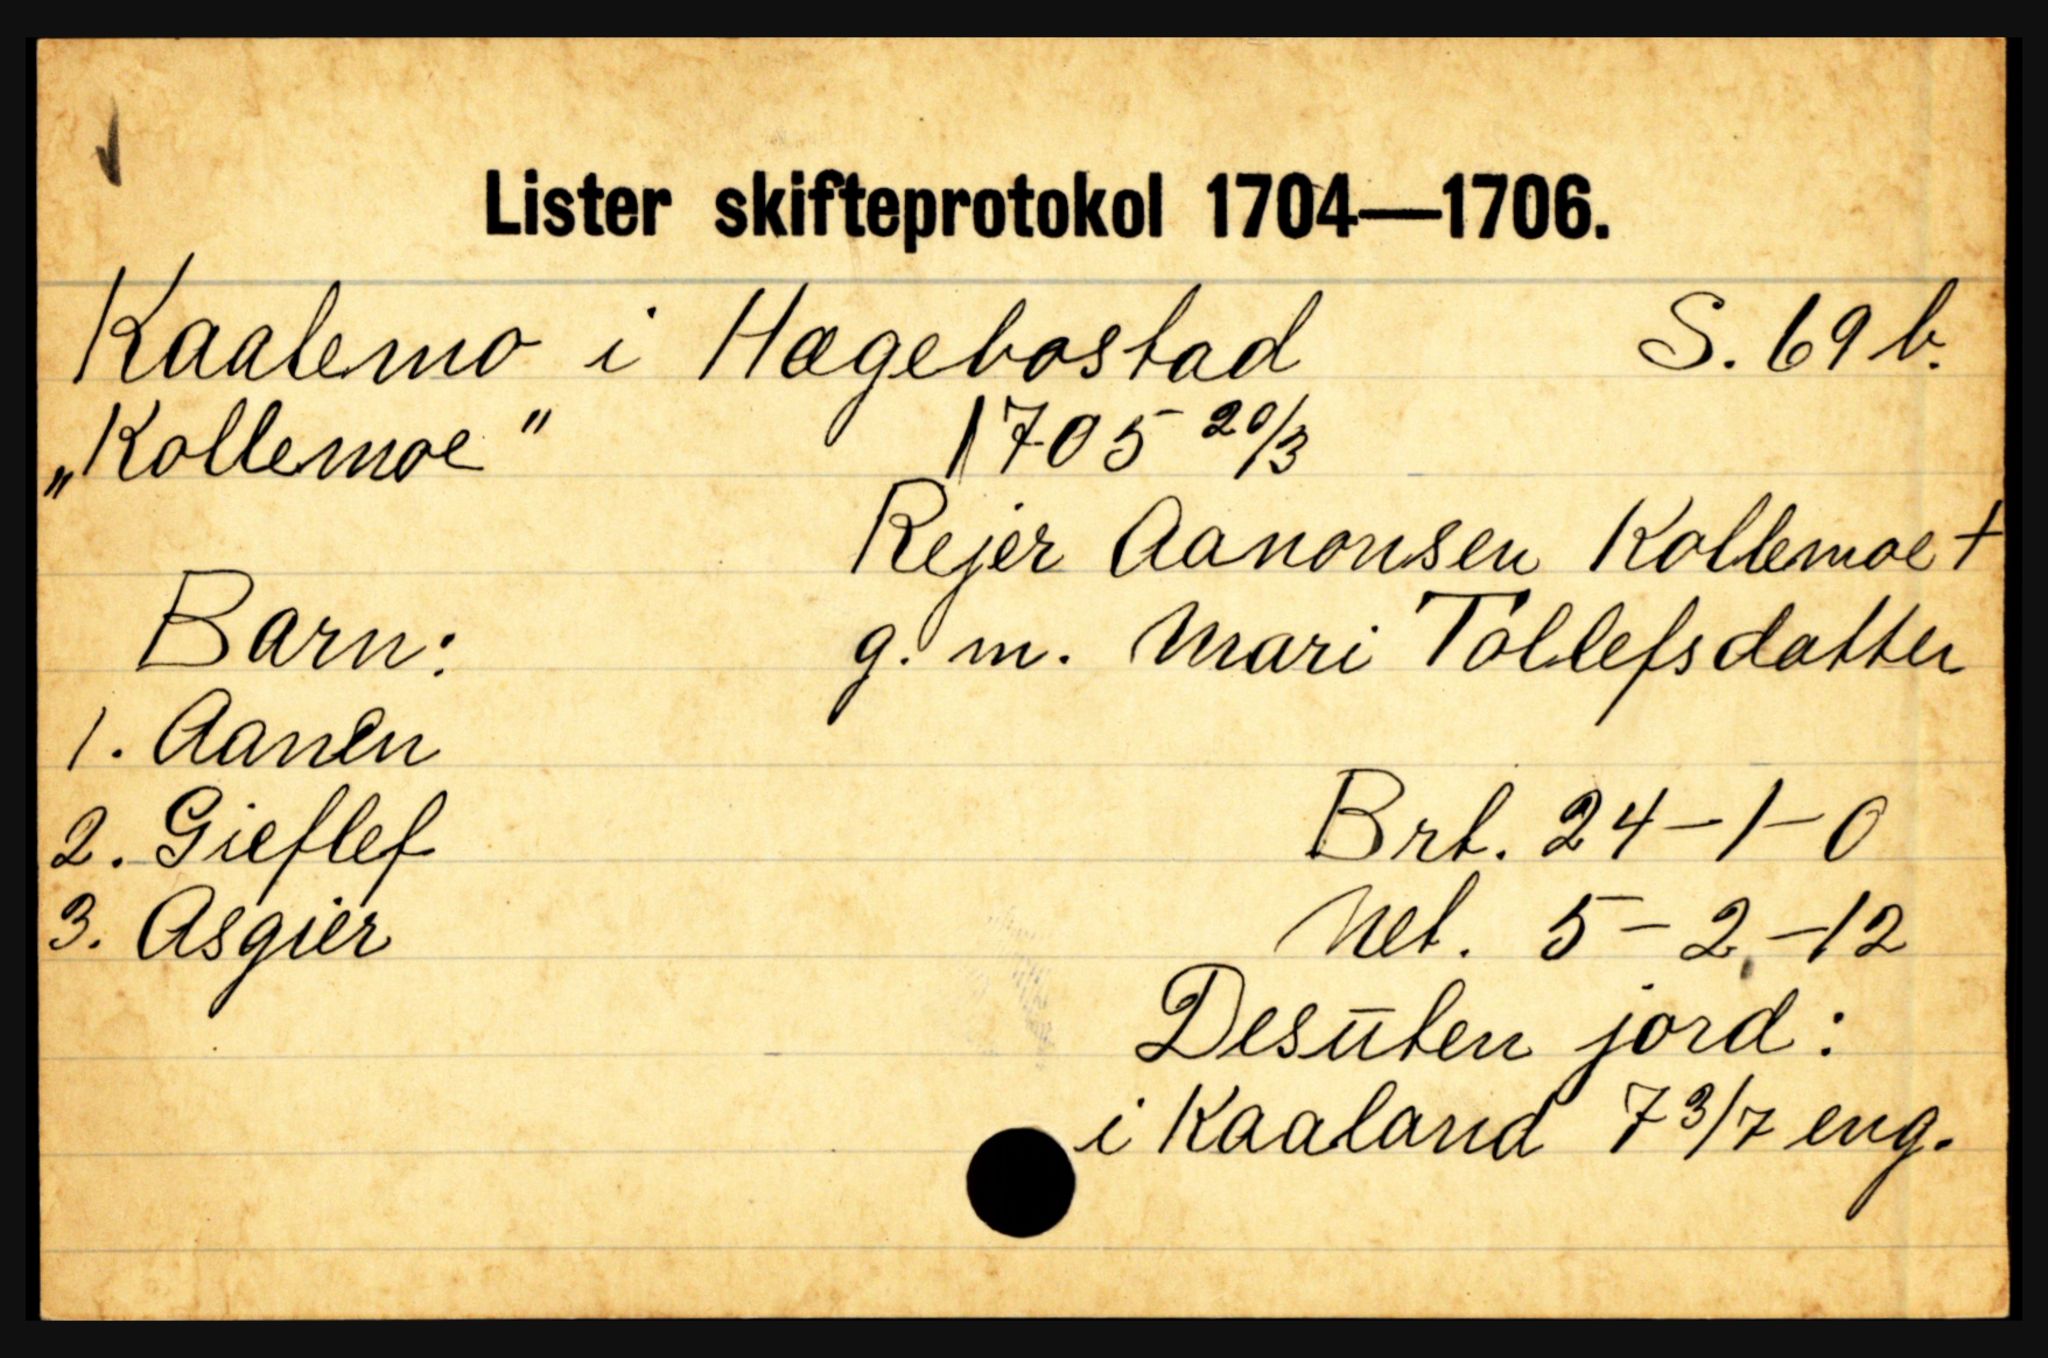 Lister skifteprotokol 1704—1706.
Kaalemo i Hægebostad S. 69 b.
„Kollemoe" 1705 20/3
Rejer Aanonsen Kollemoe +
Barn: g. m. Mari Tollefsdatter
1. Aanen
2. Gieflef Brt. 24-1-0
3. Asgier Net. 5-2-12
Desuten jord:
i Kaaland 7 3/7 eng.